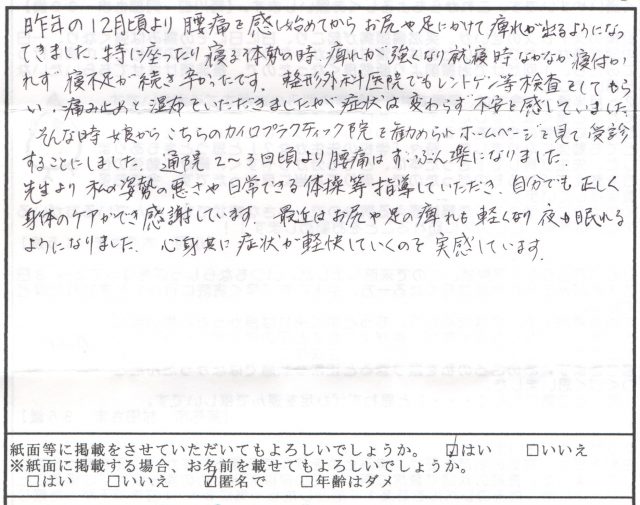 昨年の12月頃より腰痛を感じ始めてからお尻や足にかけて痺れが出るようになっ
てきました。特に座ったり寝る体勢の時、痺れが強くなり就寝時なかなか寝付か
れず寝不足が続き辛かったです。整形外科医院でもレントゲン等検査をしてもら
い、痛み止めと湿布をいただきましたが症状は変わらず不安を感じていました。
そんな時娘からこちらのカイロプラクティック院を勧められホームページを見て受診
することにしました。通院2～3回頃より腰痛はずいぶん楽になりました。
先生より私の姿勢の悪さや日常できる体操等指導していただき、自分でも正しく
身体のケアができ感謝しています。最近はお尻や足の痺れも軽くなり夜も眠れる
ようになりました。心身共に症状が軽快していくのを実感しています。
紙面等に掲載をさせていただいてもよろしいでしょうか。 ☑はい □いいえ
※紙面に掲載する場合、お名前を載せてもよろしいでしょうか。
□はい □いいえ ☑匿名で □年齢はダメ